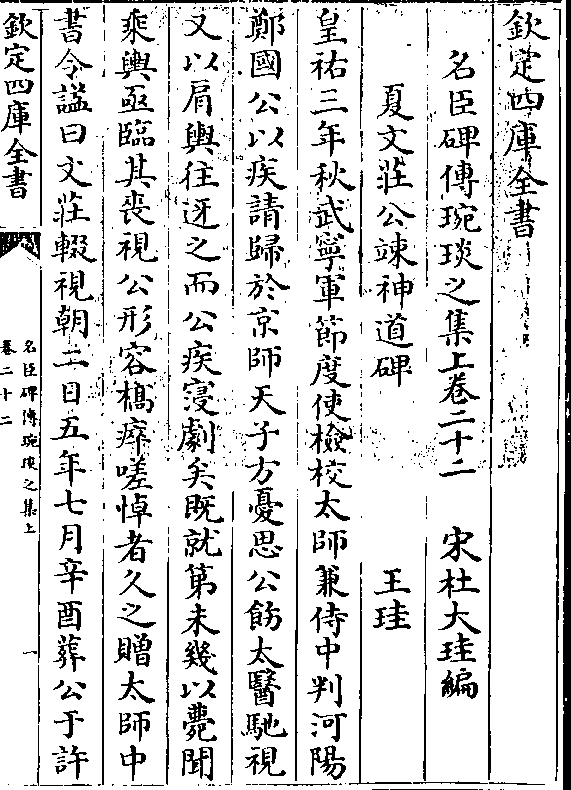 欽定四庫全書
名臣碑傳琬琰之集上卷二十二　宋杜大珪編
夏文莊公竦神道碑　王珪
皇祐三年秋武寧軍節度使檢校太師兼侍中判河陽
鄭國公以疾請歸於京師天子方憂思公飭太醫馳視
又以肩輿往迓之而公疾寖劇矣既就第未幾以薨聞
乘輿亟臨其喪視公形容槁瘠嗟悼者久之贈太師中
書令諡曰文莊輟視朝二日五年七月辛酉葬公于許
欽定四庫全書
名臣碑傳琬琰之集上
卷二十二
一